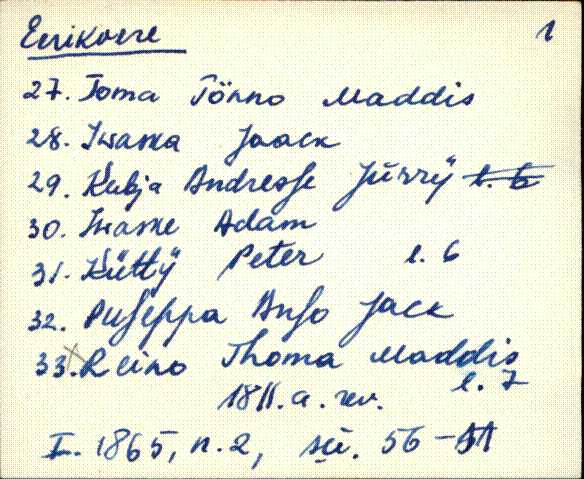 Eerikvere 1
27. Toma Tönno Maddis
28. Iwaska Jaack
29. Kubja Andresse Jürrÿ l. 6
30. Iwaske Adam
31. Küttÿ Peter l. 6
32. Puseppa Anso Jack
33. Reino Thoma Maddis
1811. a. rev. l. 7
I. 1865, n. 2, sü. 56-